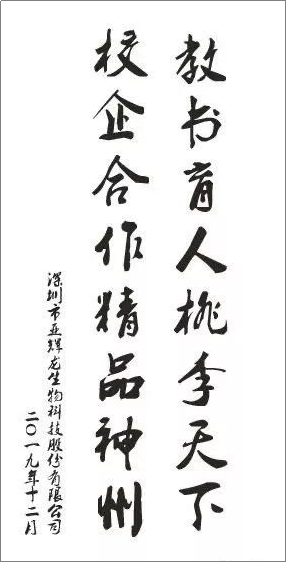 教书育人桃李天下
校企合作精品神州
深圳市亚辉龙生物科技股份有限公司
二〇一九年十二月